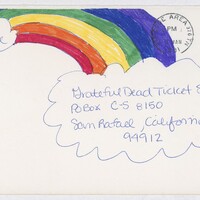 PM
Grateful Dead Ticket S
PO Box C-S 8150
San Rafael, California
94912